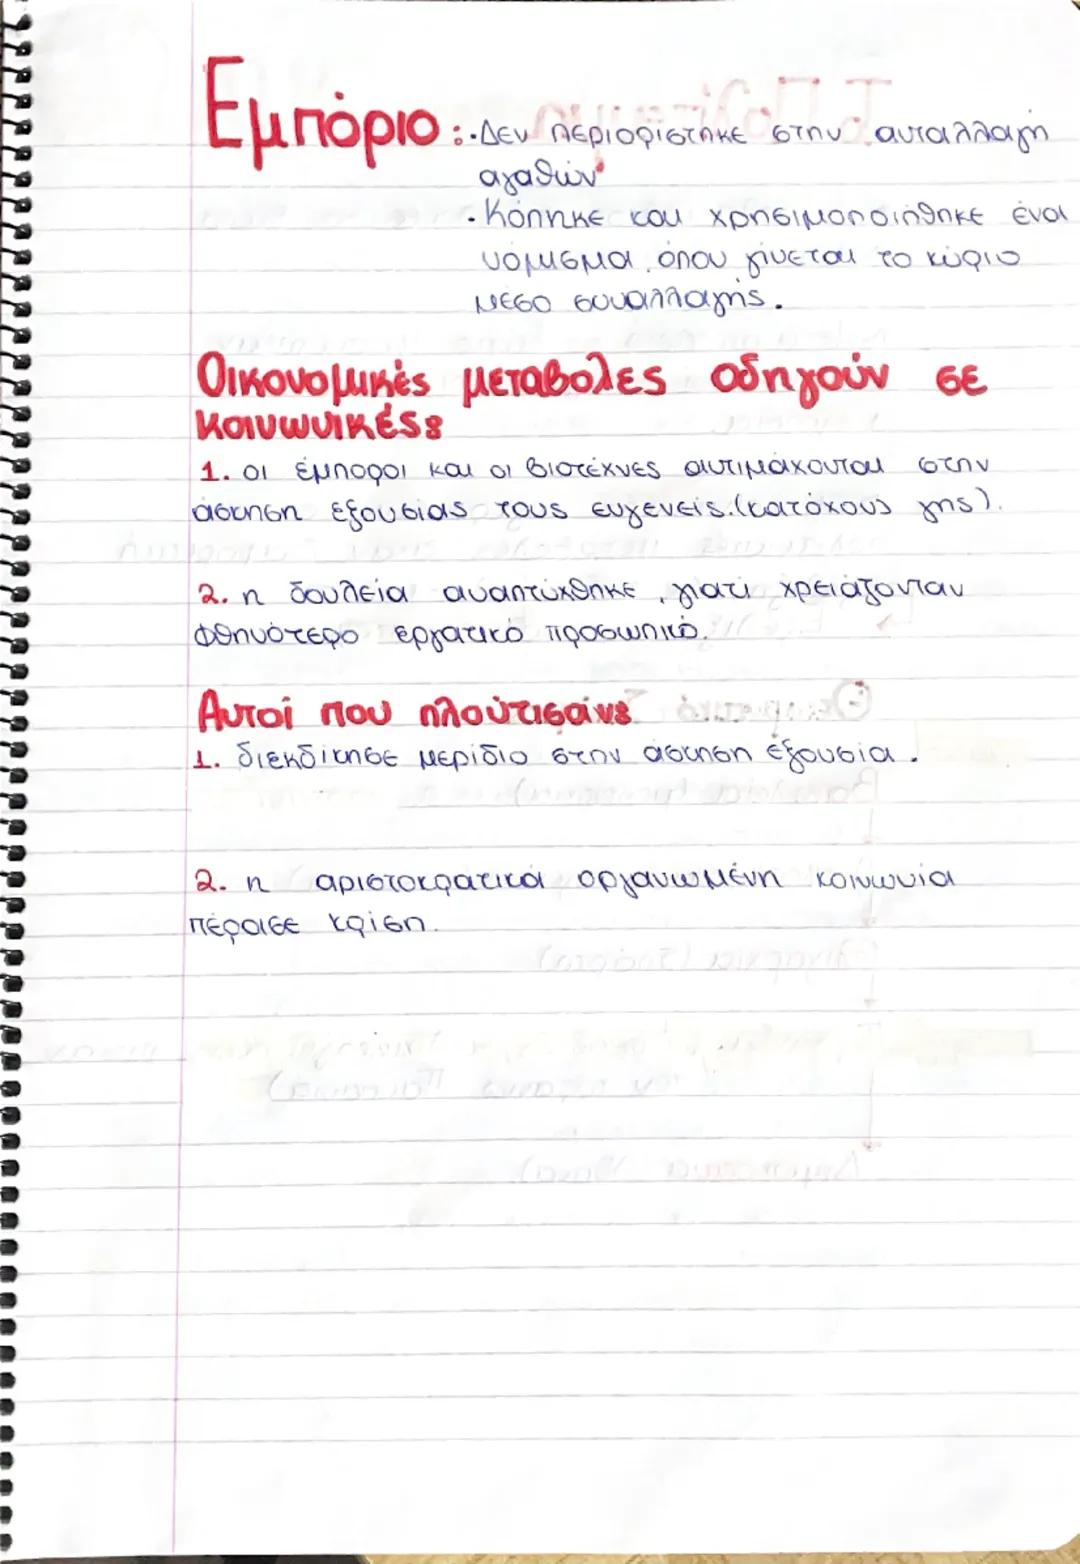 Εμπόριο :·Δεν περιορίστηκε στην ανταλλαγή
αγαθών
·Κόπηκε και χρησιμοποιήθηκε ένα
νόμισμα, όπου γίνεται το κύριο
μέσο συναλλαγής.
Οικονομικές μεταβολές οδηγούν σε
κοινωνικές:
1. οι έμποροι και οι βιοτέχνες αντιμάχονται στην
άσκηση εξουσίας τους ευγενείς.(κατόχους γης).
2. η δουλεία αναπτύχθηκε, γιατί χρειάζονταν
φθηνότερο εργατικό προσωπικό.
Αυτοί που πλούτισαν:
1. διεκδίκησε μερίδιο στην άσκηση εξουσία.
2. η αριστοκρατικά οργανωμένη κοινωνία
πέρασε κρίση.